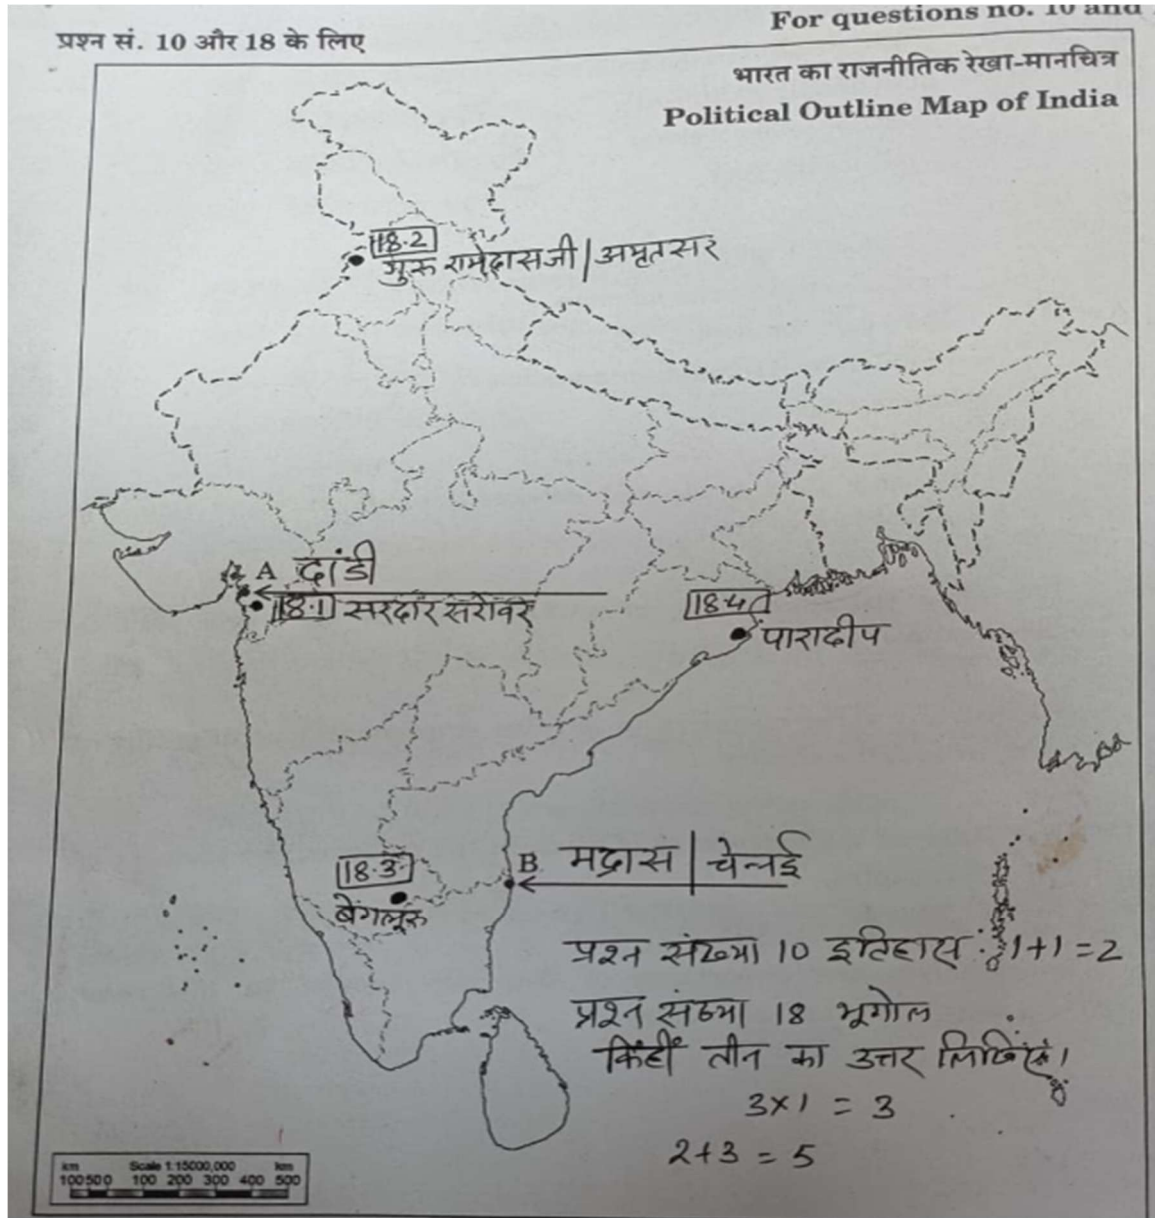 For questions no. 10 and
प्रश्न सं. 10 और 18 के लिए
भारत का राजनीतिक रेखा-मानचित्र
Political Outline Map of India
18.2
गुरु रामदासजी / अमृतसर
A दांडी
18.1 सरदार सरोवर
18.4
पारादीप
18.3
बेंगलूरु
B मद्रास / चेन्नई
प्रश्न संख्या 10 इतिहास : 1+1 = 2
प्रश्न संख्या 18 भूगोल
किंहीं तीन का उत्तर लिखिए।
3×1 = 3
2+3 = 5
km Scale 1:15000,000 km
100 50 0 100 200 300 400 500